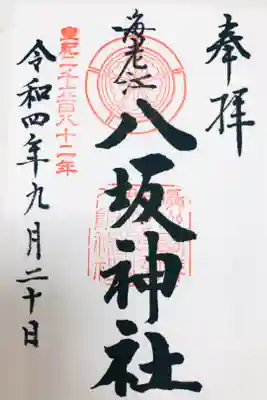 奉拝
海老江
八坂神社
皇紀二千六百八十二年
令和四年九月二十日